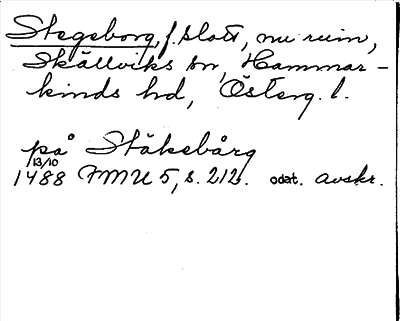 Stegeborg, f. slott, nu ruin,
Skällviks sn, Hammar-
kinds hd, Österg. l.
på Stäkebårg
13/10
1488 FMU 5, s. 212. odat. avskr.